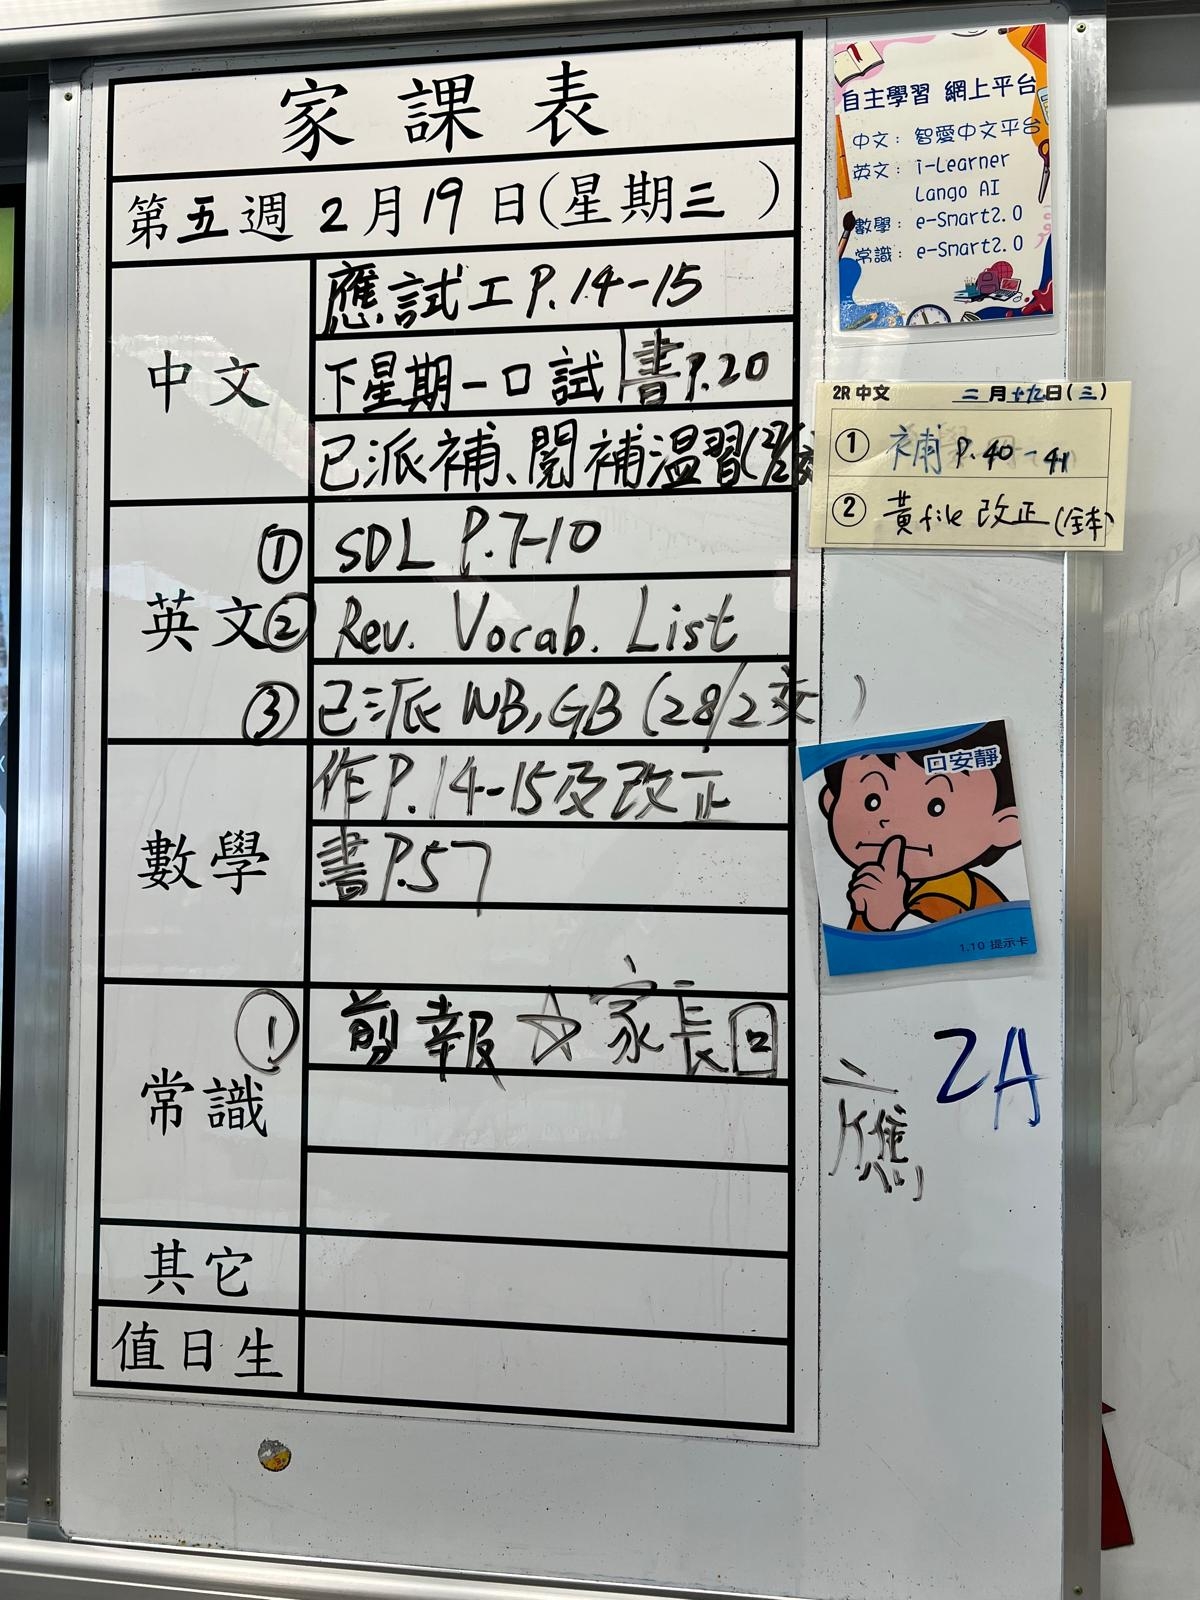 家課表
第五週 2月19日(星期三 )
中文
應試工 P.14-15
下星期一口試 書P.20
已派補、閱補溫習
英文
① SDL P.7-10
② Rev. Vocab. List
③ 已派 WB, GB (28/2交)
數學
作P.14-15及改正
書P.57
常識
① 剪報 ☆家長回
其它
值日生
自主學習 網上平台
中文: 智愛中文平台
英文: i-Learner
Lango AI
數學: e-Smart2.0
常識: e-Smart2.0
2R 中文 二月十九日(三)
① 補 P.40-41
② 黃file 改正
口安靜
1.10 提示卡
2A
應